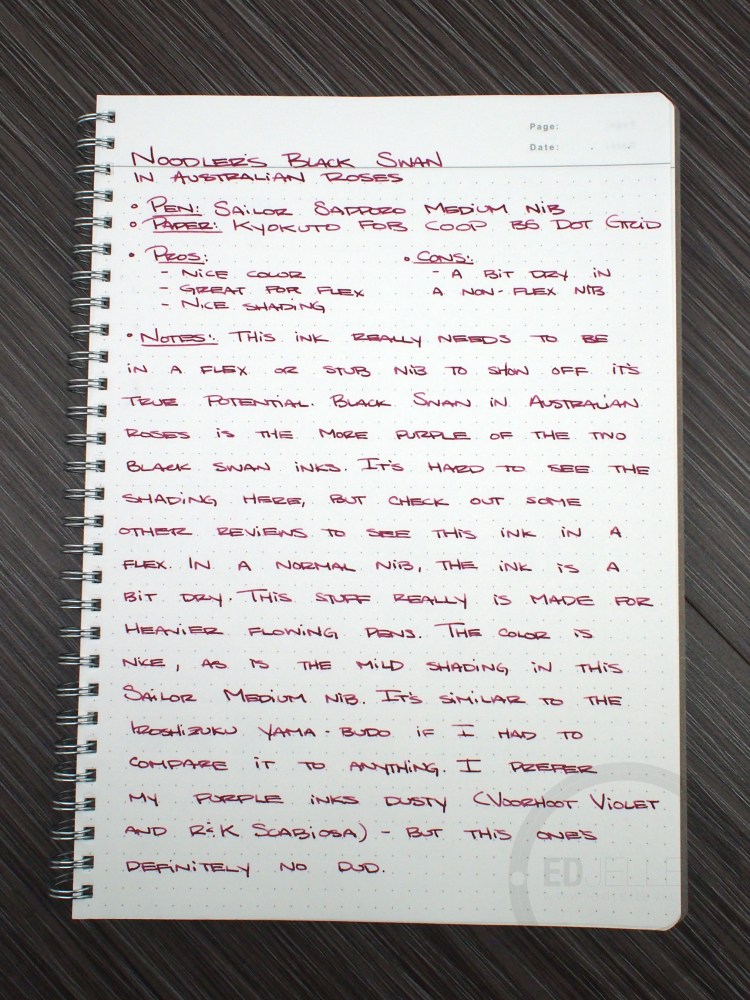 Page:
Date:
NOODLER'S BLACK SWAN
IN AUSTRALIAN ROSES
• PEN: SAILOR SAPPORO MEDIUM NIB
• PAPER: KYOKUTO FOB COOP B5 DOT GRID
• PROS: • CONS:
- NICE COLOR - A BIT DRY IN
- GREAT FOR FLEX A NON-FLEX NIB
- NICE SHADING
• NOTES: THIS INK REALLY NEEDS TO BE
IN A FLEX OR STUB NIB TO SHOW OFF IT'S
TRUE POTENTIAL. BLACK SWAN IN AUSTRALIAN
ROSES IS THE MORE PURPLE OF THE TWO
BLACK SWAN INKS. IT'S HARD TO SEE THE
SHADING HERE, BUT CHECK OUT SOME
OTHER REVIEWS TO SEE THIS INK IN A
FLEX. IN A NORMAL NIB, THE INK IS A
BIT DRY. THIS STUFF REALLY IS MADE FOR
HEAVIER FLOWING PENS. THE COLOR IS
NICE, AS IS THE MILD SHADING IN THIS
SAILOR MEDIUM NIB. IT'S SIMILAR TO THE
IROSHIZUKU YAMA-BUDO IF I HAD TO
COMPARE IT TO ANYTHING. I PREFER
MY PURPLE INKS DUSTY (VOORHOOT VIOLET
AND R&K SCABIOSA) - BUT THIS ONE'S
DEFINITELY NO DUD.
ED JELLEY